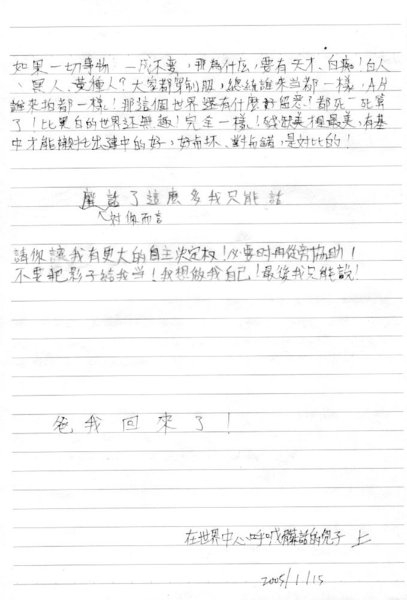 如果一切事物 一成不變，那為什么，要有天才、白痴！白人
、黑人、黃種人？大家都穿制服，總統誰來當都一樣，AH
誰來拍都一樣！那這個世界還有什麼好留戀？都死一死算
了！比黑白的世界还無趣！完全一樣！殘缺美才是最美，有基
中才能襯托出建中的好，好有坏、對有錯，是對比的！
廢話了這麼多我只能話
對你而言
請你讓我有更大的自主決定权！必要时再從旁協助！
不要把影子給我当！我想做我自己！最後我只能說！
爸我回來了！
在世界中心呼喊 廢話的兒子 上
2005/1/15